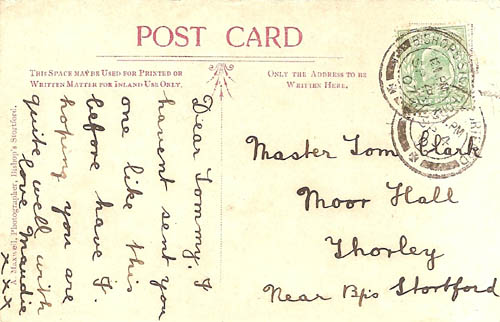 POST CARD
THIS SPACE MAY BE USED FOR PRINTED OR
WRITTEN MATTER FOR INLAND USE ONLY.
ONLY THE ADDRESS TO BE
WRITTEN HERE.
Maxwell, Photographer, Bishop's Stortford.
Dear Tommy. I
havent sent you
one like this
before have I.
hoping you are
quite well with
love Maudie
x x x
Master Tom Clark
Moor Hall
Thorley
Near Bps Stortford
BISHOPS